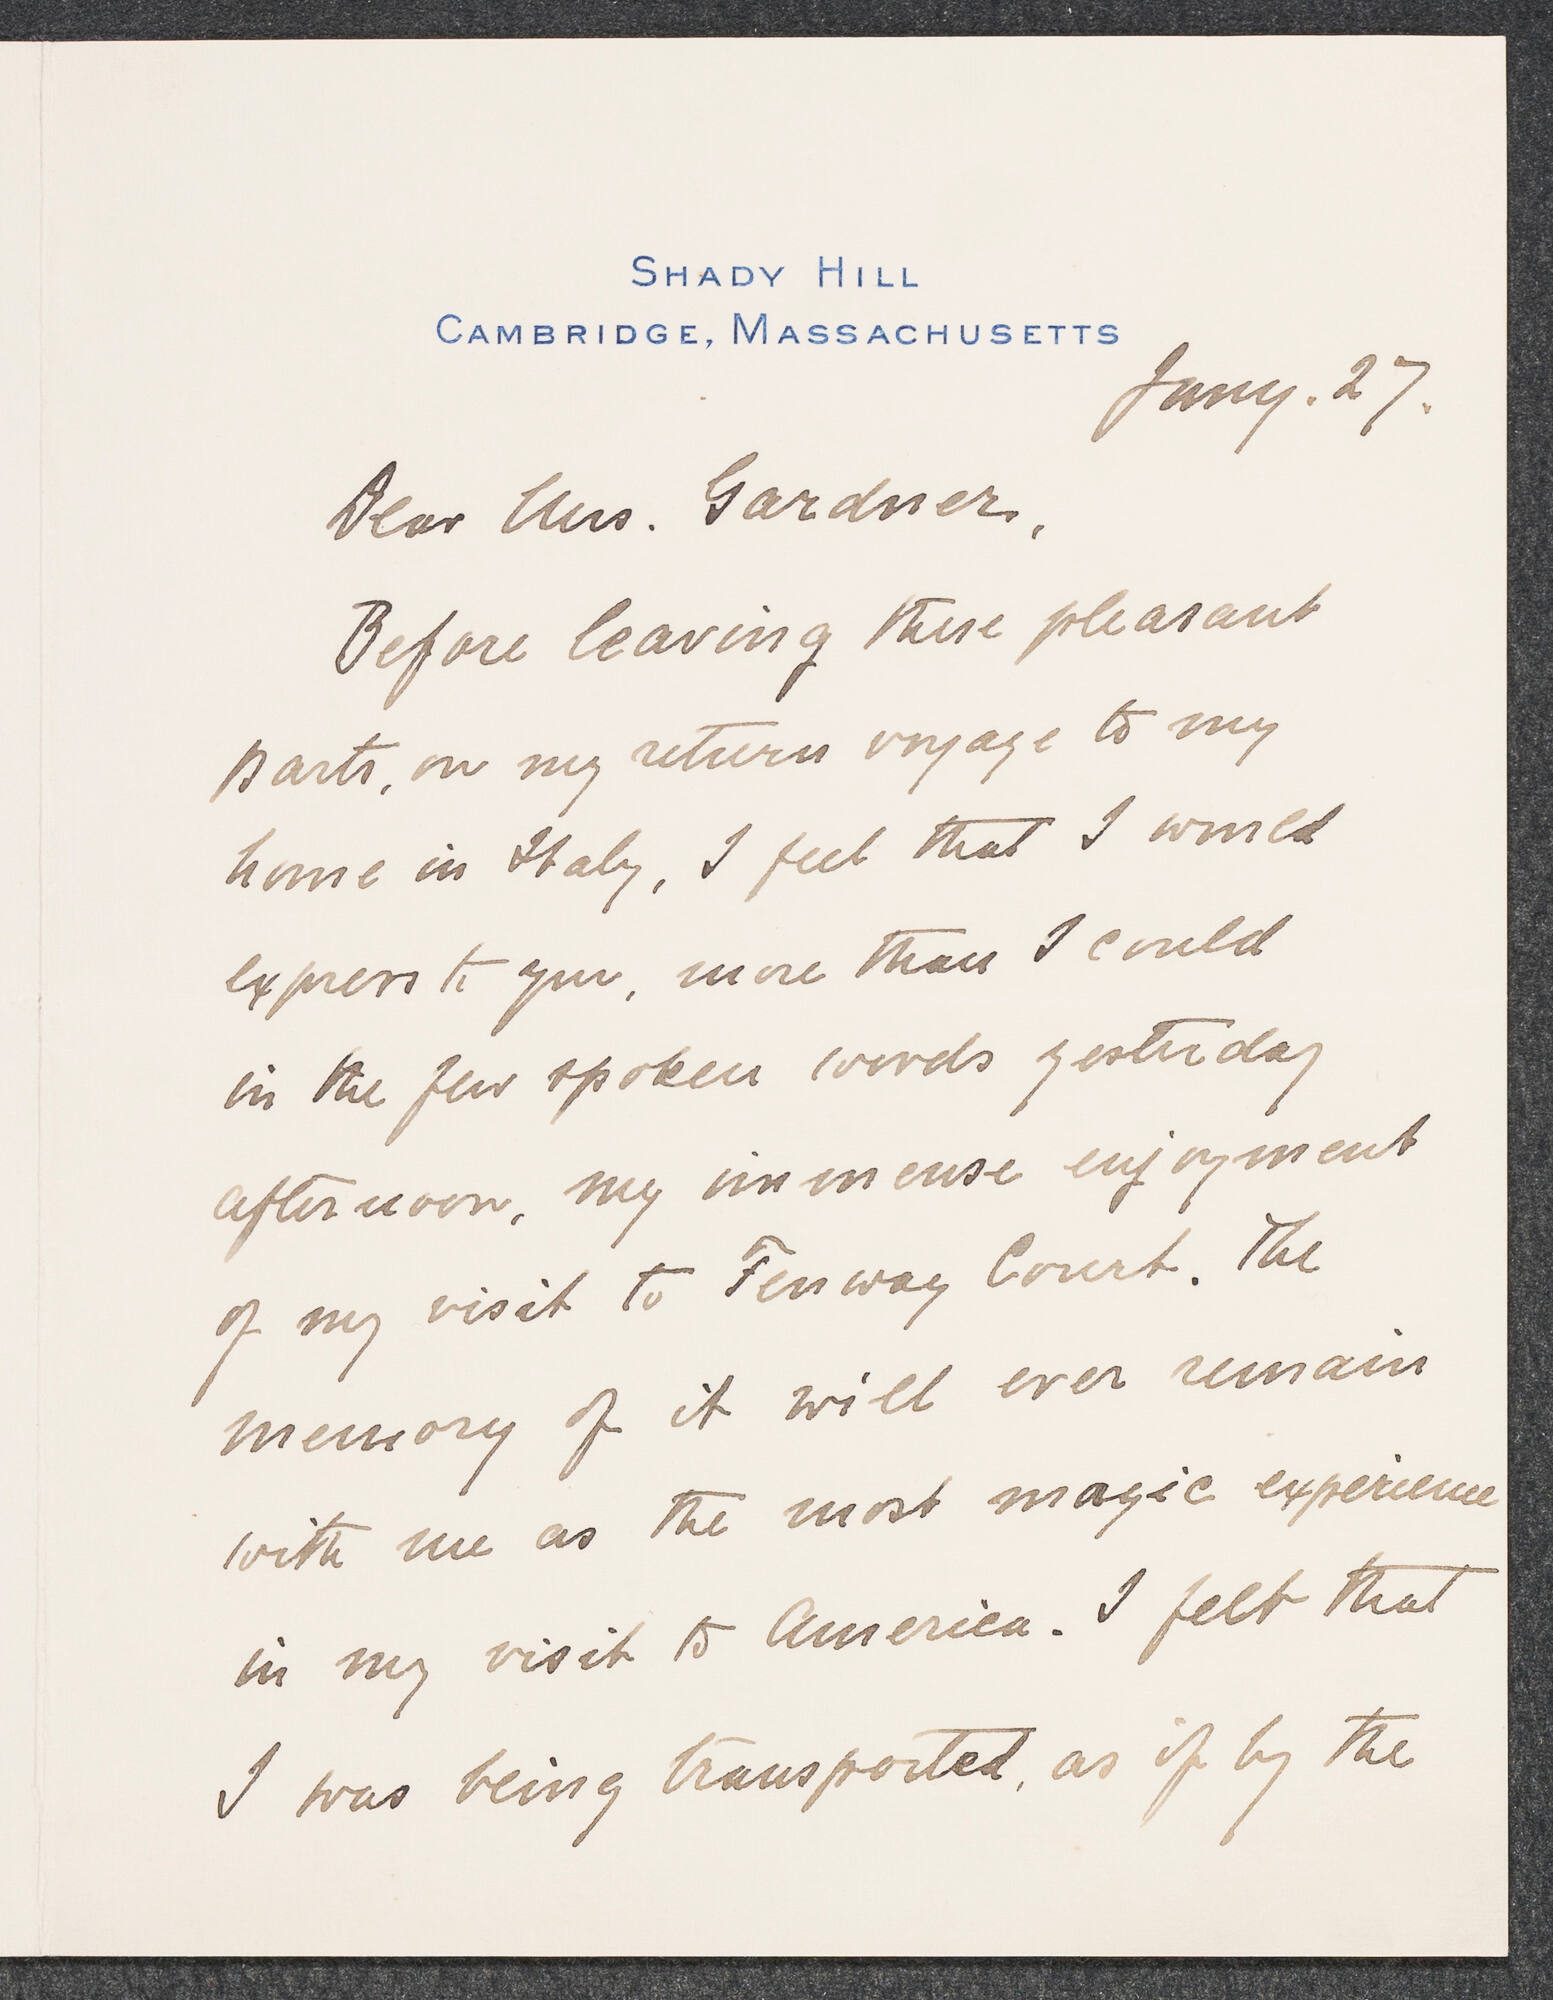 SHADY HILL
CAMBRIDGE, MASSACHUSETTS
Jany. 27.
Dear Mrs. Gardner,
Before leaving these pleasant
parts, on my return voyage to my
home in Italy, I feel that I would
express to you, more than I could
in the few spoken words yesterday
afternoon, my immense enjoyment
of my visit to Fenway Court. The
memory of it will ever remain
with me as the most magic experience
in my visit to America. I felt that
I was being transported, as if by the